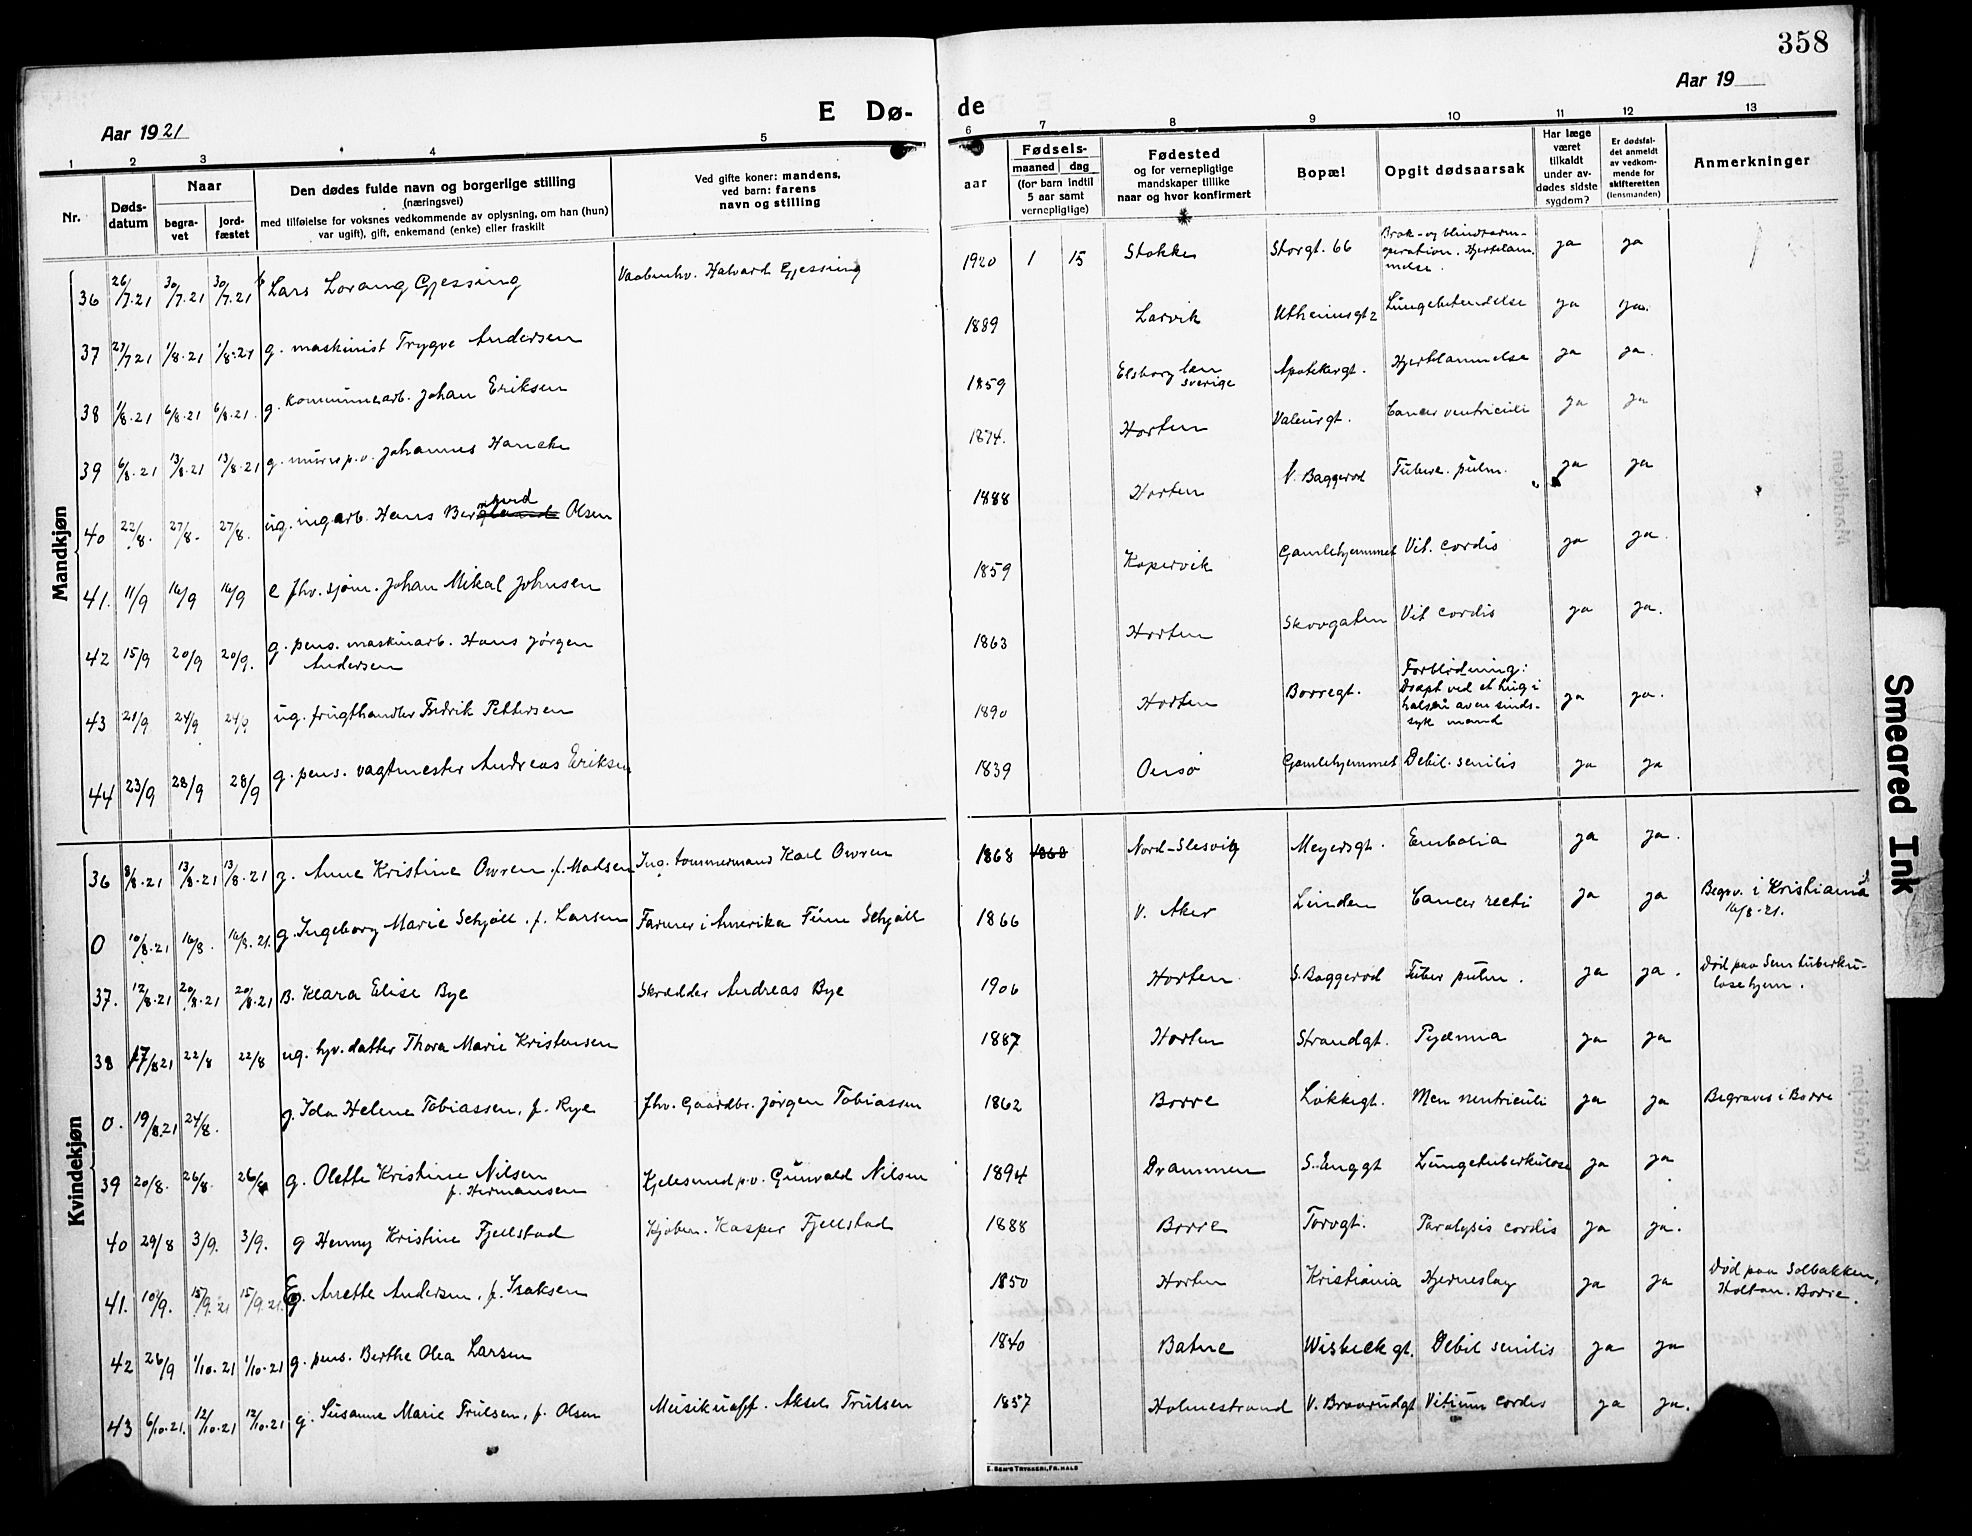 358
Aar 1921
E Dø-
de
Aar 19
1 2 3 4 5
6 7 8 9 10 11 12 13
Nr.
Døds-
datum
Naar
begra-
vet
jord-
fæstet
Den dødes fulde navn og borgerlige stilling
(næringsvei)
med tilføielse for voksnes vedkommende av oplysning, om han (hun)
var ugift), gift, enkemand (enke) eller fraskilt
Ved gifte koner: mandens,
ved barn: farens
navn og stilling
aar
Fødsels-
maaned dag
(for barn indtil
5 aar samt
vernepligtige)
Fødested
og for vernepligtige
mandskaper tillike
naar og hvor konfirmert
Bopæl
Opgit dødsaarsak
Har læge
været
tilkaldt
under av-
dødes sidste
sygdom?
Er dødsfal-
det anmeldt
av vedkom-
mende for
skifteretten
(lensmanden)
Anmerkninger
Mandkjøn
36 26/7.21 30/7.21 30/7.21 Lars Lorang Gjessing Vaabenhv. Halvard Gjessing 1920 1 15 Stokke Storgt. 66 Brok- og blindtarm-
operation. Hjertelam-
melse. ja ja
37 27/7 21 1/8.21 1/8.21 g. maskinist Trygve Andersen 1889 Larvik Utheimsgt 2 Lungebetendelse ja ja.
38 1/8.21 6/8.21 6/8.21. g. kommunearb. Johan Eriksen 1859 Elsborg len
Sverige Apotekergt. Hjertelammelse ja ja.
39 6/8.21 13/8.21 13/8.21 g. murer p.v. Johannes Hancke 1874. Horten Valeurgt. Cancer ventriculi ja ja
40 22/8. 27/8. 27/8. ug. ing arb. Hans Olsen 1888 Horten V. Baggerød Tuberc. pulm. ja ja
41. 11/9 16/9 16/9 e fhv. sjøm. Johan Mikal Johnsen 1859 Kopervik Gamlehjemmet Vit. cordis ja ja.
42 15/9 20/9 20/9. g. pens. maskinarb. Hans Jørgen
Andersen 1863 Horten Skovgaten Vit cordis ja ja.
43 21/9 24/9 24/9 ug. frugthandler Fredrik Pettersen 1890 Horten Borregt. Forblødning:
Dræpt ved et hug i
halsen av en sinds-
syk mand ja ja.
44 23/9 28/9 28/9 g. pens. vagtmester Andreas Eriksen 1839 Onsø Gamlehjemmet Debil. senilis ja ja
Kvindekjøn
36 8/8.21 13/8.21 13/8.21 g. Anne Kristine Owren f. Madsen Ing. tømmermand Karl Owren 1868 1868 Nord-Slesvig Meyersgt. Embolia ja ja.
0 10/8.21 16/8. 16/8.21. g. Ingeborg Marie Schjøll. f. Larsen Farmer i Amerika Fime Schjøll 1866 V. Aker Linden Cancer recti ja ja Begrv. i Kristiania
16/8-21.
37. 12/8.21 20/8.21 20/8.21 B. Klara Elise Bye Skrædder Andreas Bye 1906 Horten S. Baggerød Tuber pulm. ja ja. Død paa Sem tuberku-
losehjem.
38 17/8 21 22/8 22/8 ug. hv. datter Thora Marie Kristensen 1887 Horten Strandgt. Pyæmia ja ja
0. 19/8.21 24/8. g. Ida Helene Tobiassen, f. Rye fhv. Gaardbr. Jørgen Tobiassen 1862 Borre Løkkegt. ja ja Begraves i Borre
39 20/8. 26/8. 26/8 g. Olette Kristine Nilsen
f. Hermansen Kjelesmed p.v. Gunvald Nilsen 1894 Drammen S. Enggt Lungetuberkulose ja ja
40 29/8 3/9. 3/9. g Henny Kristine Fjellstad Kjøbm. Kasper Fjellstad 1888 Borre Torvgt. Paralysis cordis ja ja.
41. 10/9. 15/9.21 15/9.21. E. Anette Andersen, f. Isaksen 1850 Horten Kristiania Hjerneslag ja ja Død paa Solbakken,
Holtan. Borre.
42 26/9 1/10.21 1/10.21 g. pens. Berthe Olea Larsen 1840 Batne Wisbeckgt. Debil senilis ja ja
43 6/10.21. 12/10.21 12/10.21 g. Susanne Marie Trulsen, f. Olsen Musikuoff. Aksel Trulsen 1857 Holmestrand V. Braarudgt Vitium cordis ja ja.
E. SEM'S TRYKKERI, FR.HALD
Smeared Ink